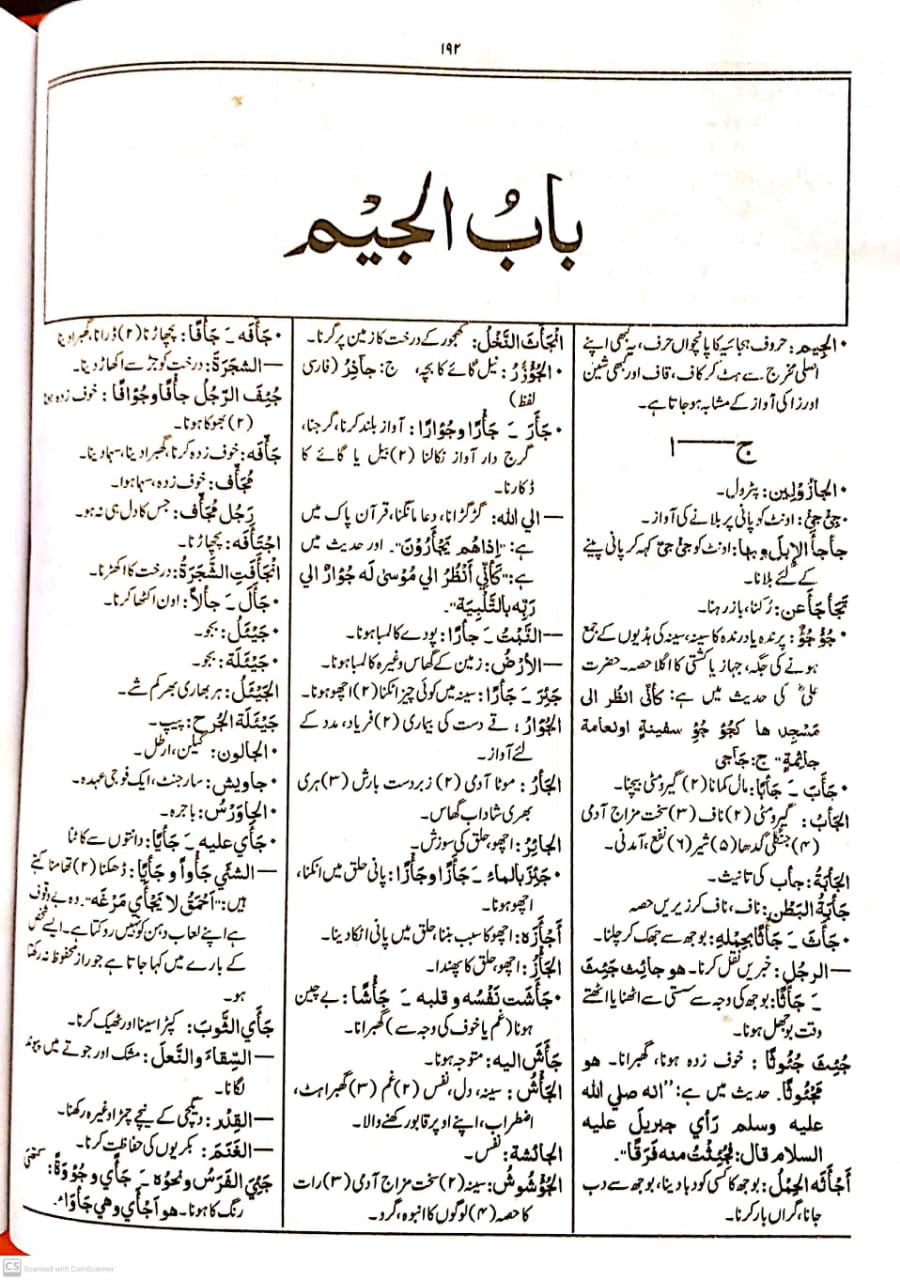 ۱۹۲
بابُ الجیْم
• الجِيم: حروف ہجائیہ کا پانچواں حرف، یہ کبھی اپنے
اصلی مخرج سے ہٹ کر کاف، قاف اور کبھی شین
اور زا کی آواز کے مشابہ ہو جاتا ہے۔
ج —— ا
• الجازُولِين: پٹرول۔
• جِئْ جِئْ: اونٹ کو پانی پر بلانے کی آواز۔
جأجأ الإبِلَ و بِها: اونٹ کو جِئْ جِئْ کہہ کر پانی پینے
کے لئے بلانا۔
تَجَأجَأ عن: رُکنا، باز رہنا۔
• جُؤجُؤٌ: پرندہ یا درندہ کا سینہ، سینہ کی ہڈیوں کے جمع
ہونے کی جگہ، جہاز یا کشتی کا اگلا حصہ۔ حضرت
علیؓ کی حدیث میں ہے: کأنّي انظُر الی
مَسْجِدِ ها کجُؤ جُؤِ سفینةٍ او نعامة
جاثِمَةٍ" ج: جَآجی
• جَأبَ ـَ جَأبًا: مال کمانا (۲) گیرو مٹی بیچنا۔
الجَأبُ: گیرو مٹی (۲) ناف (۳) سخت مزاج آدمی
(۴) جنگلی گدھا (۵) شیر (۶) نفع، آمدنی۔
الجَأبَةُ: جأب کی تانیث۔
جَأبَةُ البَطْن: ناف، ناف کر زیریں حصہ
• جَأثَ ـَ جَأثًا بِحِمْلِهِ: بوجھ سے جھک کر چلنا۔
—الرجُل: خبریں نقل کرنا۔ هو جائِث جَئِثَ
ـَ جَأثًا: بوجھ کی وجہ سے سستی سے اٹھنا یا اٹھتے
وقت بوجھل ہونا۔
جُئِثَ جُئُوثًا: خوف زدہ ہونا، گھبرانا۔ هو
مَجْئُوثٌ. حدیث میں ہے: "انه صلي الله
عليه وسلم رأي جبريل عليه
السلام قال: فجُئِثْتُ منه فَرَقًا".
أَجْأثَه الحِمْلُ: بوجھ کا کسی کو دبا دینا، بوجھ سے دب
جانا، گراں بار کرنا۔
انْجَأثَ النَّخْلُ: کھجور کے درخت کا زمین پر گرنا۔
• الجُؤْذُرُ: نیل گائے کا بچہ، ج: جآذِرُ (فارسی
لفظ)
• جَأرَ ـَ جَأرًا وجُوارًا: آواز بلند کرنا، گرجنا،
گرج دار آواز نکالنا (۲) بیل یا گائے کا
ڈکارنا۔
—الي الله: گڑگڑانا، دعا مانگنا، قرآن پاک میں
ہے: "إذاهُم يَجْأرُوْنَ". اور حدیث میں
ہے: "كأنّي أنْظُرُ الي مُوْسٰي لَه جُوارٌ الي
رَبِّه بالتَّلْبِيَة".
—النَّبْتُ ـ جأرًا: پودے کا لمبا ہونا۔
—الأرْضُ: زمین کے گھاس وغیرہ کا لمبا ہونا۔
جَئِرَ ـَ جَأرًا: سینہ میں کوئی چیز اٹکنا (۲) اچھو ہونا۔
الجُوَارُ: قے دست کی بیماری (۲) فریاد، مدد کے
لئے آواز۔
الجَأرُ: موٹا آدمی (۲) زبردست بارش (۳) ہری
بھری شاداب گھاس۔
الجائِرُ: اچھو، حلق کی سوزش۔
• جَئِزَ بالماء ـَ جَأزًا وجَأزًا: پانی حلق میں اٹکنا،
اچھو ہونا۔
أجْأزَه: اچھو کا سبب بننا، حلق میں پانی اٹکا دینا۔
الجَأزُ: اچھو، حلق کا پھندا۔
• جَأشَت نَفْسُه و قلبه ـَ جَأشًا: بے چین
ہونا (غم یا خوف کی وجہ سے) گھبرانا۔
جَأشَ اليه: متوجہ ہونا۔
الجَأشُ: سینہ، دل، نفس (۲) غم (۳) گھبراہٹ،
اضطراب، اپنے اوپر قابو رکھنے والا۔
الجائشة: نفس۔
الجُؤْشُوشُ: سینہ (۲) سخت مزاج آدمی (۳) رات
کا حصہ (۴) لوگوں کا انبوہ، گرد۔
• جَأفَه ـَ جَأفًا: پچھاڑنا (۲) ڈرانا، گھبرا دینا
—الشجَرَةَ: درخت کو جڑ سے اکھاڑ دینا۔
جُئِفَ الرَّجُل جأفًا وجُؤَافًا: خوف زدہ ہونا
(۲) بھوکا ہونا۔
جَأَّفَه: خوف زدہ کرنا، گھبرا دینا، سہما دینا۔
مُجَأَّف: خوف زدہ، سہما ہوا۔
رَجُل مُجَأَّف: جس کا دل ہی نہ ہو۔
اجْتَأفَه: پچھاڑنا۔
انْجَأفَتِ الشَّجَرَةُ: درخت کا اکھڑنا۔
• جَأل ـَ جألاً: اون اکٹھا کرنا۔
• جَيْئَلُ: بجو۔
• جَيْئَلَة: بجو۔
الجَيْئَلُ: ہر بھاری بھرکم شے۔
جَيْئَلَة الجُرح: پیپ۔
• الجالون: گیلن، ارطل۔
• جاویش: سارجنٹ، ایک فوجی عہدہ۔
• الجاوَرْسُ: باجرہ۔
• جَأي عليه ـَ جَأيًا: دانتوں سے کاٹنا
—الشئي جَأواً و جَأيًا: ڈھکنا (۲) تھامنا کہتے
ہیں: "أحْمَقُ لا يَجْأي مَرْغَه". وہ بے وقوف
ہے اپنے لعاب دہن کو نہیں روکتا ہے۔ ایسے شخص
کے بارے میں کہا جاتا ہے جو راز محفوظ نہ رکھتا
ہو۔
جَأي الثَّوبَ: کپڑا سینا اور ٹھیک کرنا۔
—السِّقاءَ والنَّعلَ: مشک اور جوتے میں پیوند
لگانا۔
—القِدْرَ: دیگچی کے نیچے چمڑا وغیرہ رکھنا۔
—الغَنَمَ: بکریوں کی حفاظت کرنا۔
جَئِيَ الفَرَسُ ونحوُه ـَ جَأي وجُؤْوَةً: کتھئی
رنگ کا ہونا۔ هو أجْأي وهي جَأوَاءُ.
CS Scanned with CamScanner